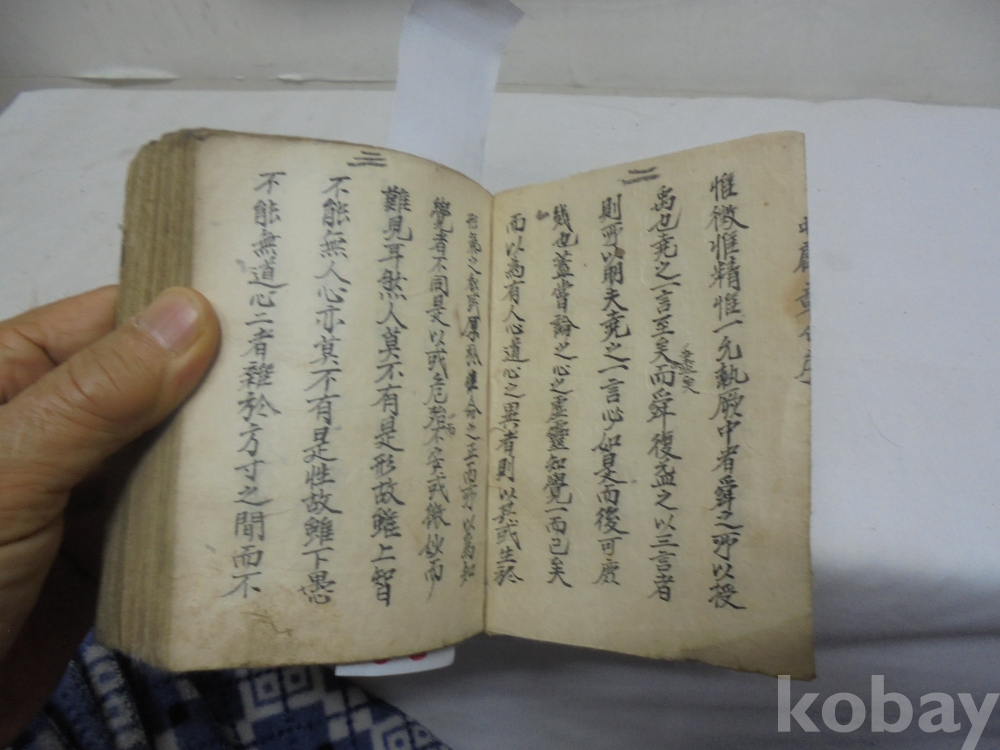 二
惟微惟精惟一允執厥中者舜之所以授
禹也堯之一言至矣盡矣而舜復益之以三言者
則所以明夫堯之一言必如是而後可庶
幾也蓋嘗論之心之虛靈知覺一而已矣
而以為有人心道心之異者則以其或生於
三
形氣之私或原於性命之正而所以為知
覺者不同是以或危殆而不安或微妙而
難見耳然人莫不有是形故雖上智
不能無人心亦莫不有是性故雖下愚
不能無道心二者雜於方寸之間而不
kobay